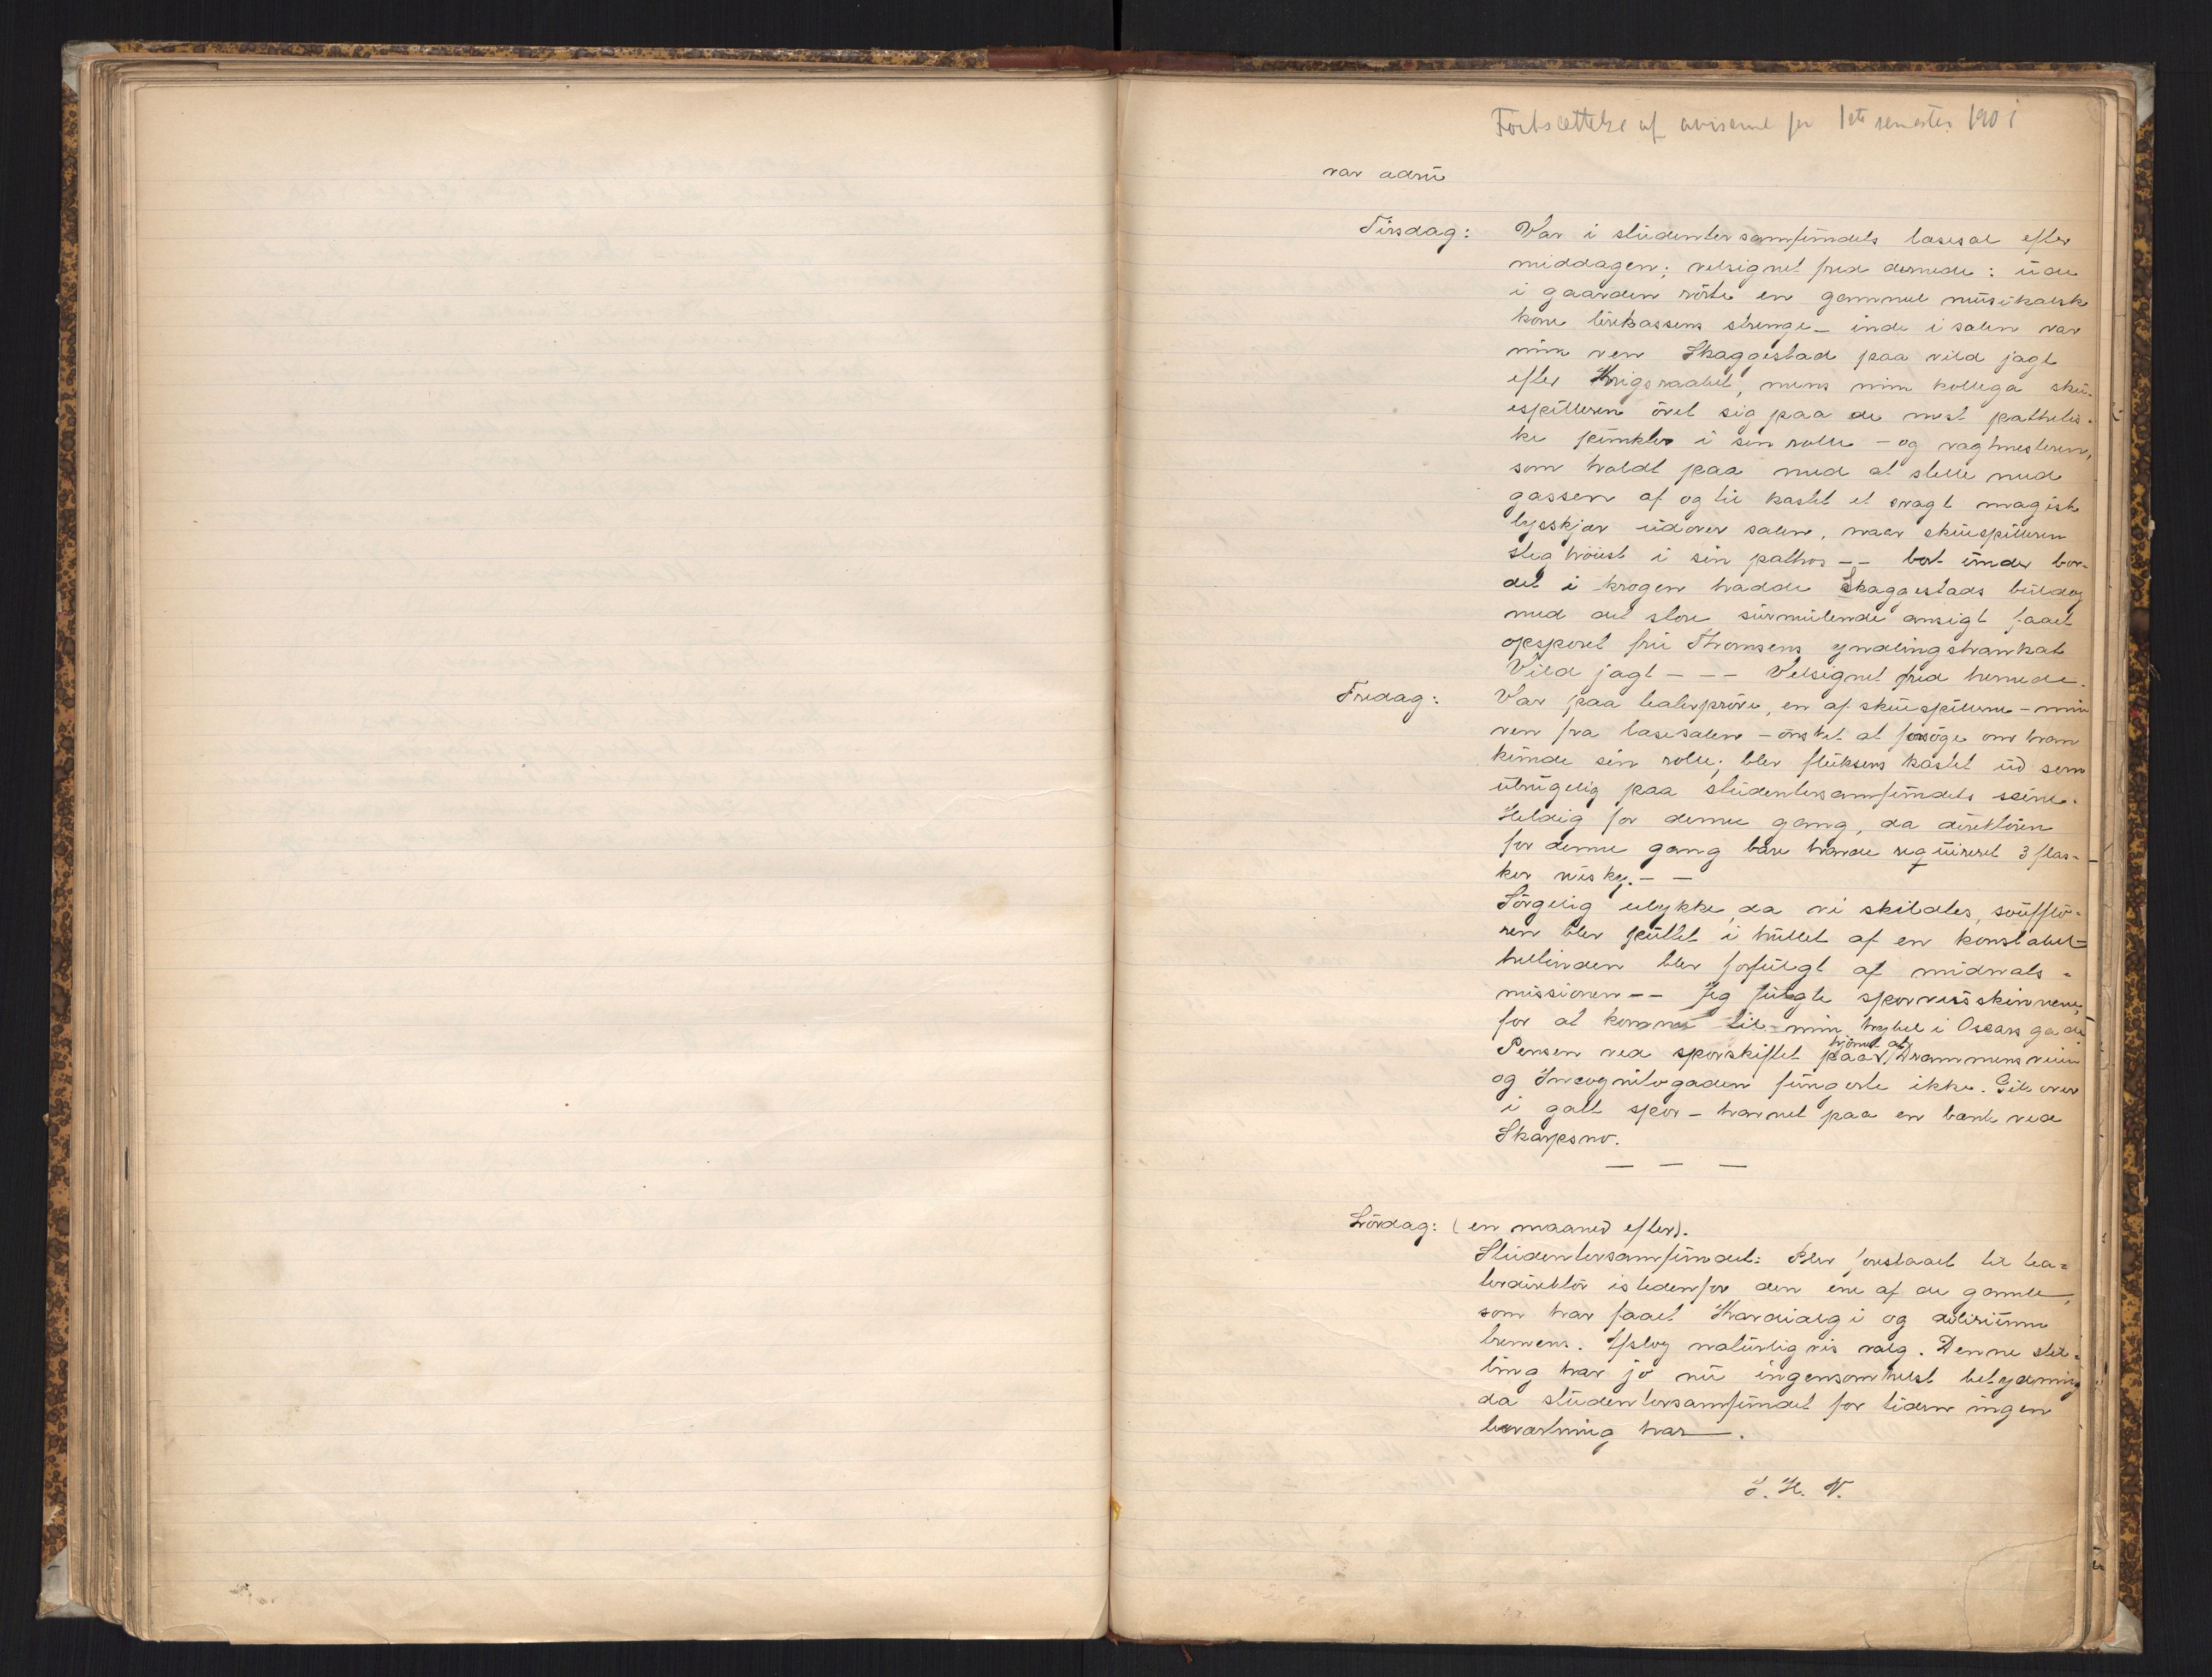 Fortsættelse af aviserne for 1ste semester 1901
var adru
Tirsdag: Var i studentersamfundets læsesal efter
middagen; velsignet fred dernede: ude
i gaarden rörte en gammel musikalsk
kone lirekassens strenge – inde i salen var
min ven Skaggestad paa vild jagt
efter Krigsraabet, mens min kollega sku-
espilleren övet sig paa de mest patheti-
ke punkter i sin rolle – og vagtmesteren,
som holdt paa med at stelle med
gassen af og til kastet et svagt magisk
lysskjær udover salen, naar skuespilleren
steg höiest i sin pathos – – bort under bor-
det i krogen hadde Skaggestads buldog
med det store surmulende ansigt faaet
opsporet fru Thomsens yndlingshankat
Vild jagt – – – Velsignet fred hernede.
Fredag: Var paa teaterpröve, en af skuespillerne – min
ven fra læsesalen – önsket at forsöge om han
kunde sin rolle; blev fluksens kastet ud som
ubrugelig paa studentersamfundets scene.
Heldig for denne gang, da direktören
for denne gang bare havde requireret 3 flas-
ker visky. – –
Sörgelig ulykke, da vi skiltes, soufflö-
ren blev puttet i hullet af en konstabel –
heltinden blev forfulgt af midnats-
missionen – – Jeg fulgte sporveisskinnerne,
for at komme til min hybel i Oscars gade
Pensen ved sporskiftet paa hjörnet af Drammensveien
og Incognitogaden fungerte ikke. Gik over
i galt spor – havnet paa en bænk ved
Skarpsno.
– – –
Lördag: (en maaned efter).
Studentersamfundet: Blev foreslaaet til tea-
terdirektör istedenfor den ene af de gamle,
som har faaet Kardialgi og delirium
tremens. Afslog naturligvis valg. Denne stil-
ling har jo nu ingensomhelst betydning
da studentersamfundet for tiden ingen
beværtning har.
J. H. N.